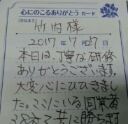 心にのこるありがとうカード
竹内様
2017年 7月 27日
本日は、丁寧な研修
ありがとうございます。
大変心にひびきまし
た。ここにいる同営者